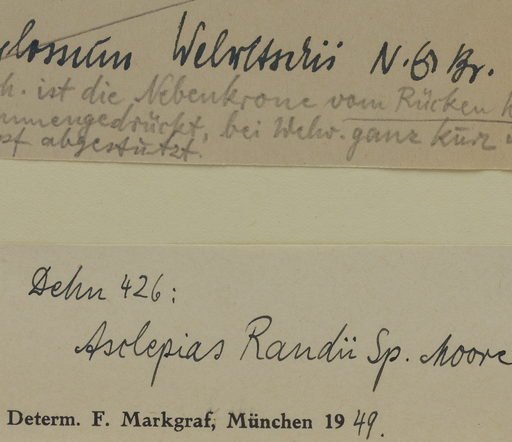 glossum Welwitschii N. E. Br.
h. ist die Nebenkrone vom Rücken h
mmengedrückt, bei Welw. ganz kurz
pf abgestutzt.
Dehn 426:
Asclepias Randii Sp. Moore
Determ. F. Markgraf, München 1949.